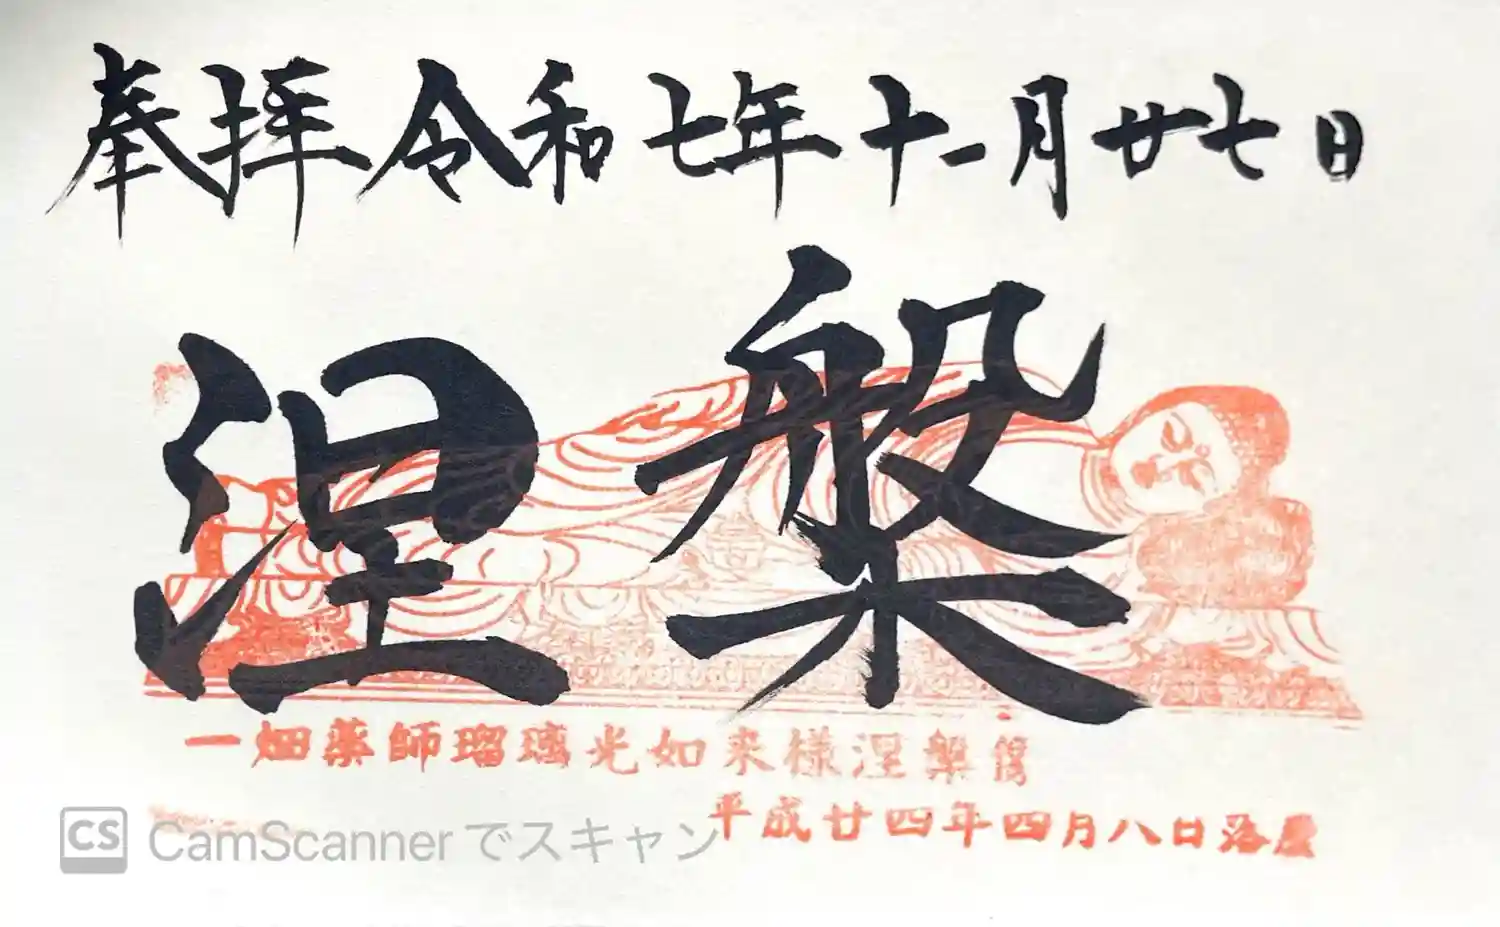 奉拝 令和七年十一月廿七日
涅槃
一畑薬師瑠璃光如来様涅槃像
平成廿四年四月八日落慶
CS CamScannerでスキャン